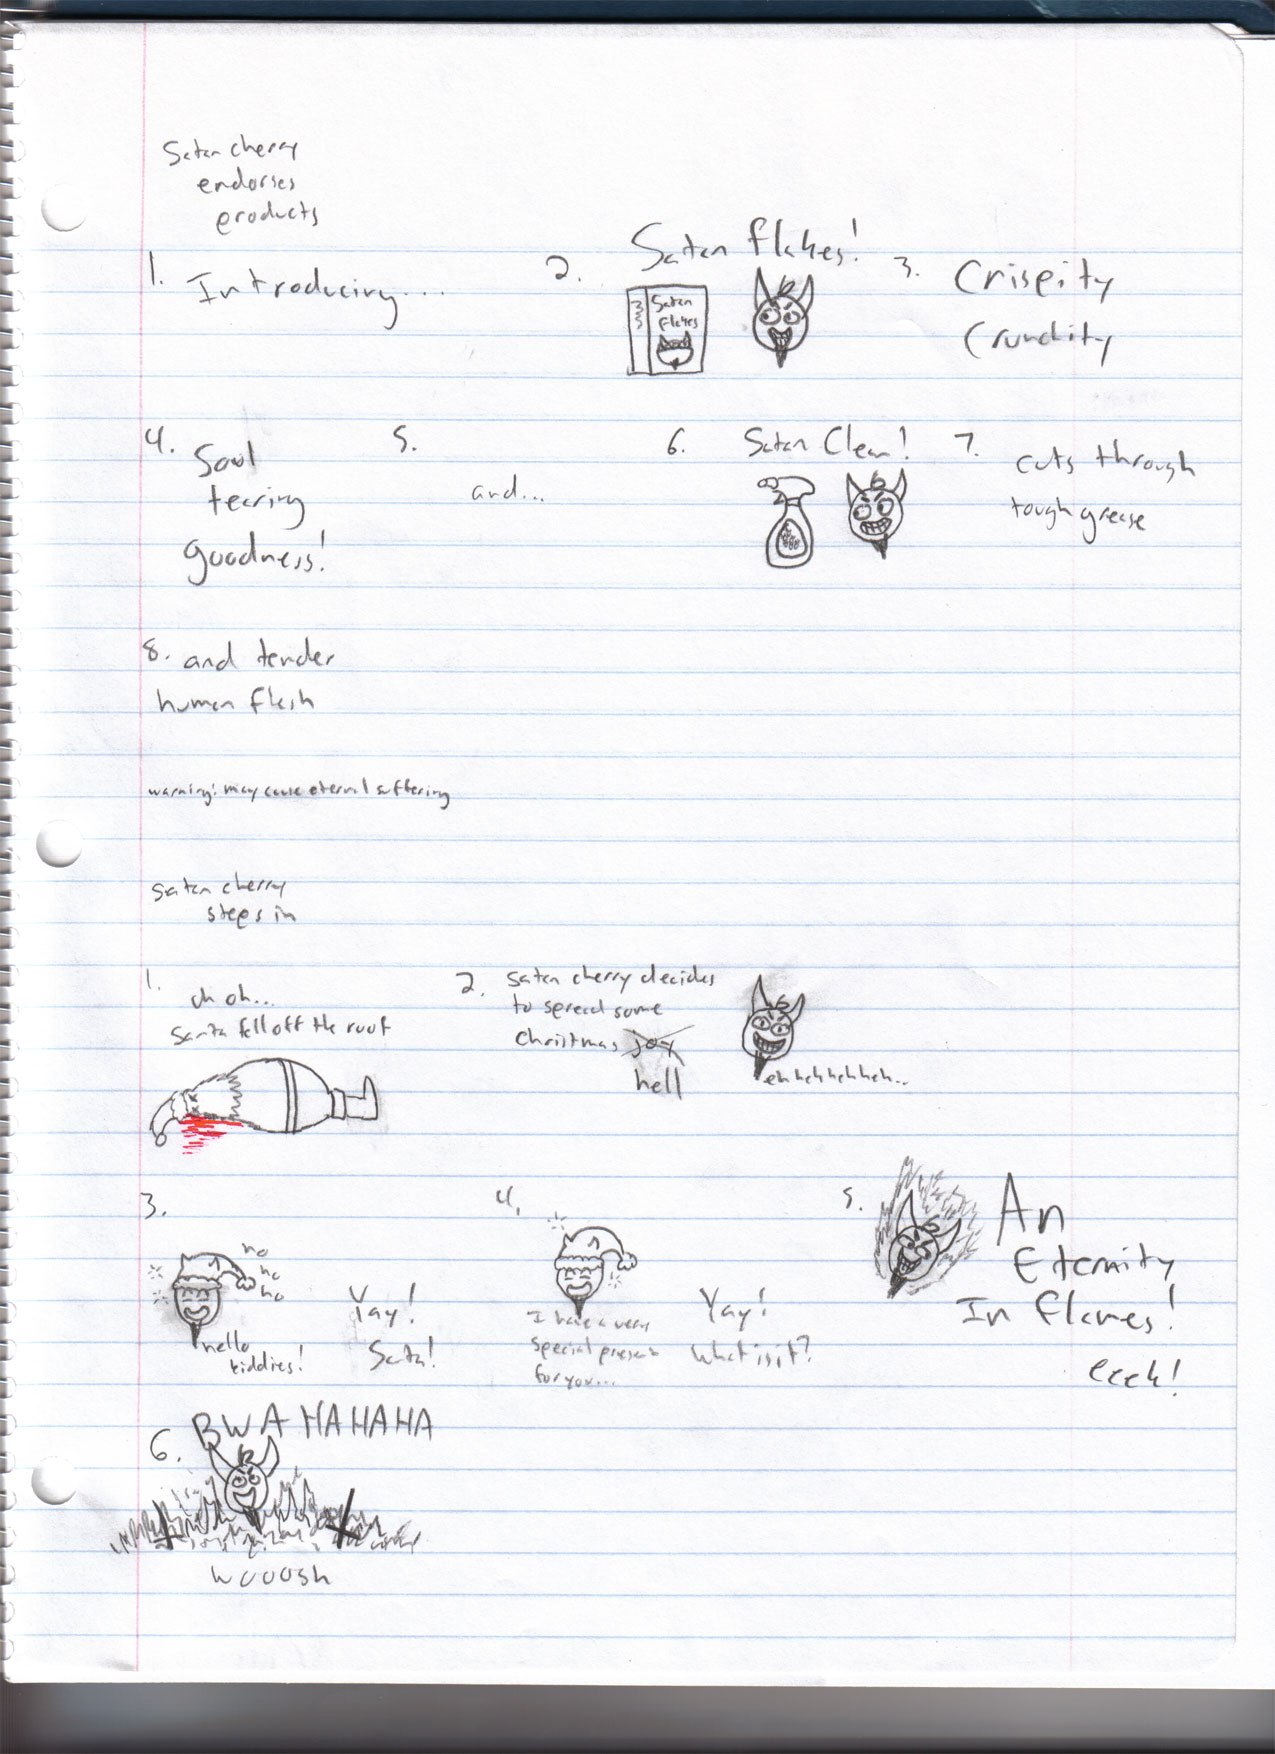 Satan cherry
endorses
products
1. Introducing...
2. Satan flakes!
Satan
flakes
3. Crispity
Crunchity
4. Soul
tearing
goodness!
5. and...
6. Satan Clean!
7. cuts through
tough grease
8. and tender
human flesh
warning: may cause eternal suffering
Satan cherry
steps in
1. uh oh...
Santa fell off the roof
2. Satan cherry decides
to spread some
christmas joy
hell
eh heh heh heh...
3.
ho
ho
ho
hello
kiddies!
Yay!
Santa!
4.
I have a very
special present
for you...
Yay!
What is it?
5. An
Eternity
In flames!
eeek!
6. BWA HAHAHA
wooosh